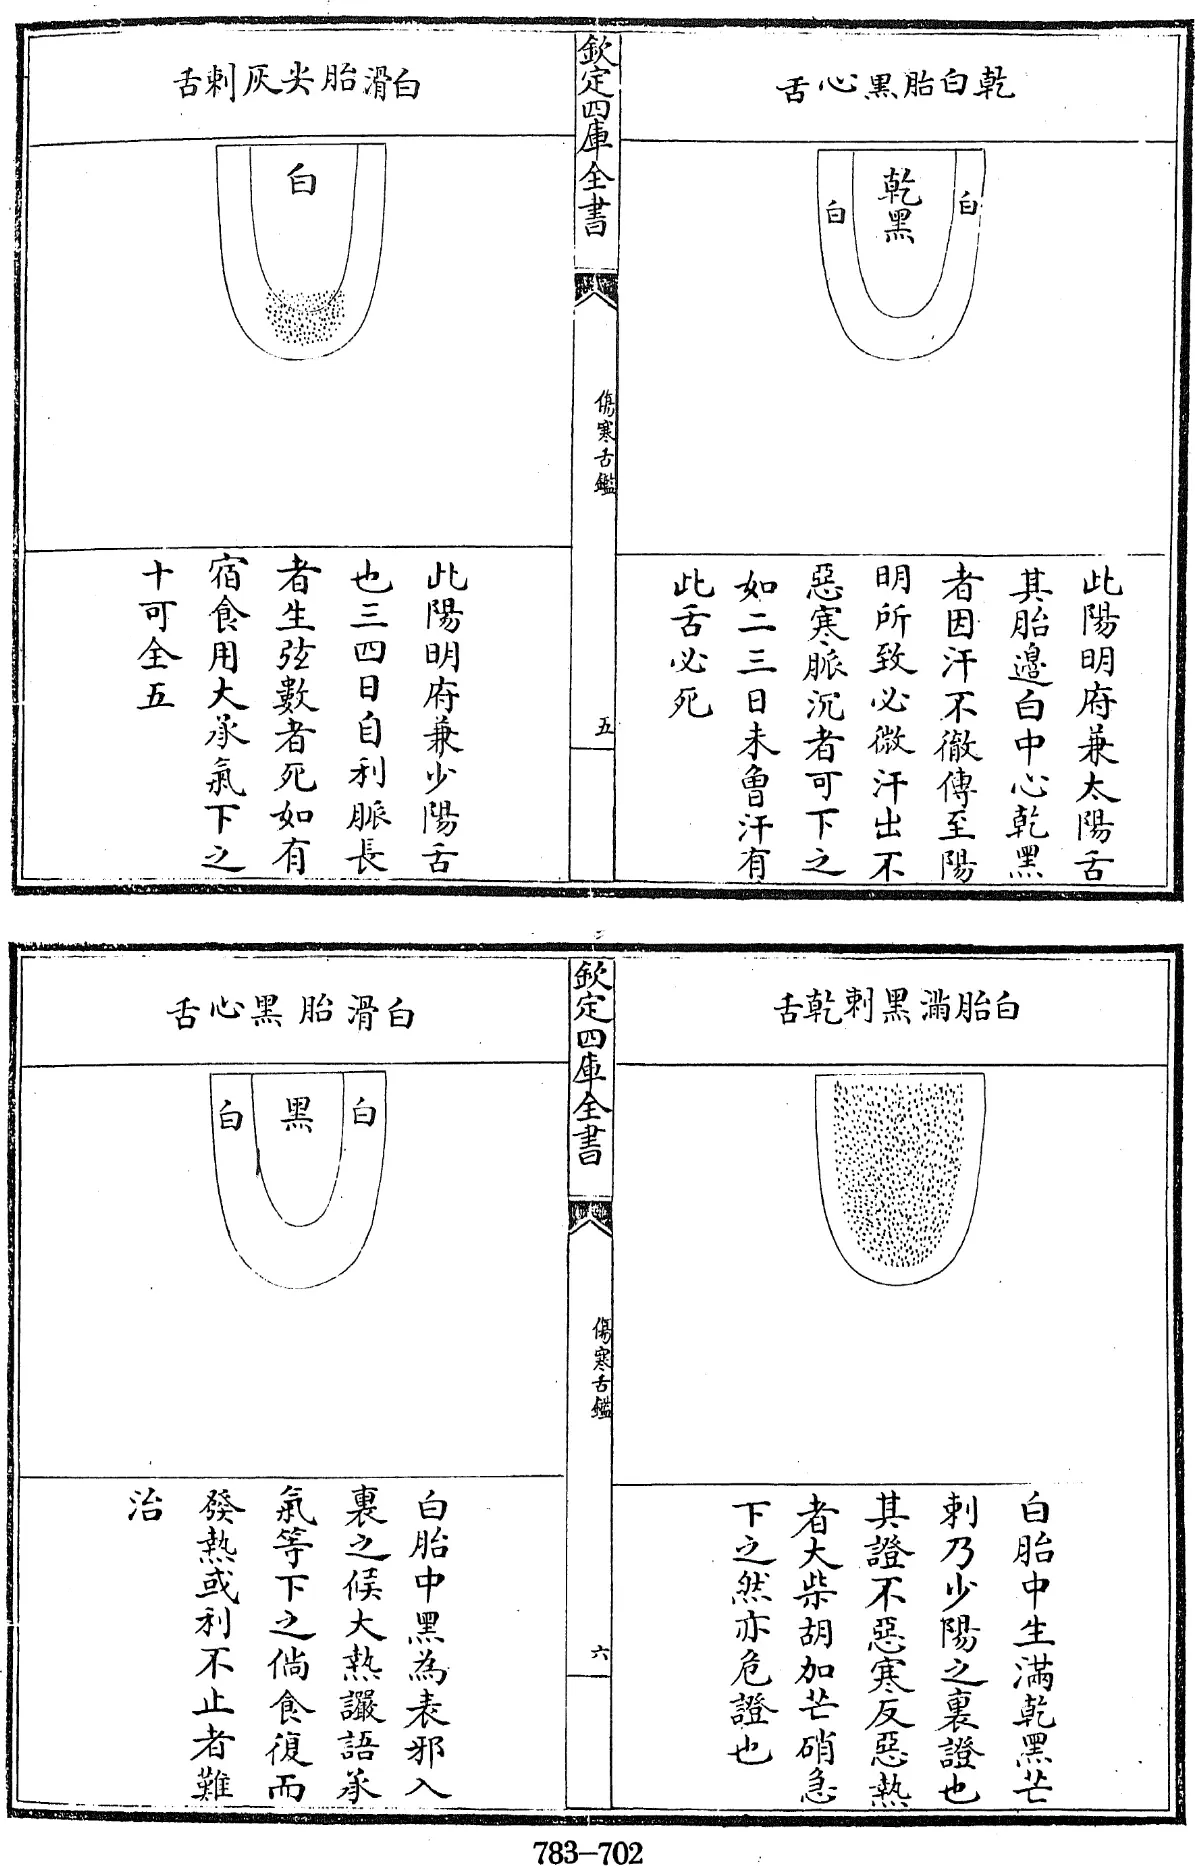 乾白胎黑心舌
乾黑
白
白
此陽明府兼太陽舌
其胎邉白中心乾黑
者因汗不徹傳至陽
明所致必微汗出不
惡寒脈沉者可下之
如二三日未曾汗有
此舌必死
欽定四庫全書
傷寒舌鑑
五
白滑胎尖灰刺舌
白
此陽明府兼少陽舌
也三四日自利脈長
者生弦數者死如有
宿食用大承氣下之
十可全五
白胎滿黑刺乾舌
白胎中生滿乾黑芒
刺乃少陽之裏證也
其證不惡寒反惡熱
者大柴胡加芒硝急
下之然亦危證也
欽定四庫全書
傷寒舌鑑
六
白滑胎黑心舌
白
黑
白
白胎中黑為表邪入
裏之候大熱讝語承
氣等下之倘食復而
發熱或利不止者難
治
783-702